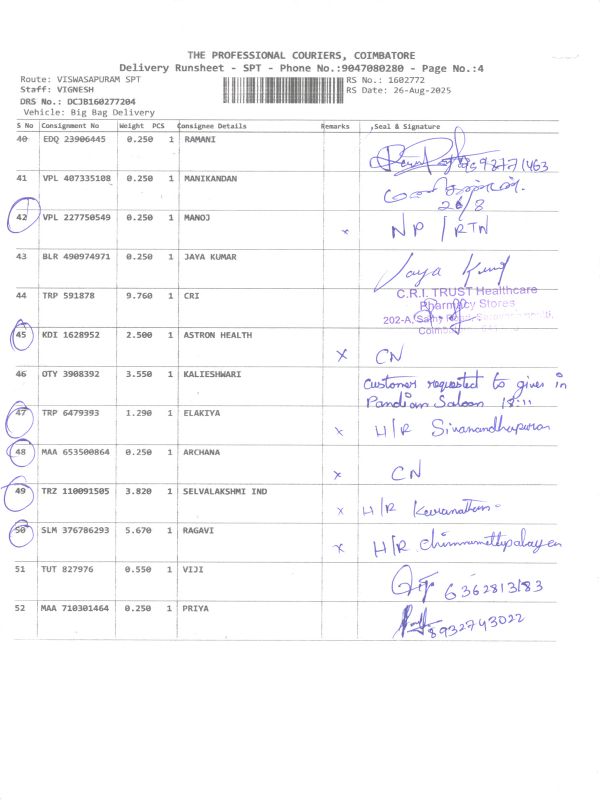 THE PROFESSIONAL COURIERS, COIMBATORE
Delivery Runsheet - SPT - Phone No.:9047080280 - Page No.:4
Route: VISWASAPURAM SPT RS No.: 1602772
Staff: VIGNESH RS Date: 26-Aug-2025
DRS No.: DCJB160277204
Vehicle: Big Bag Delivery
S No Consignment No Weight PCS Consignee Details Remarks Seal & Signature
40 EDQ 23906445 0.250 1 RAMANI
41 VPL 407335108 0.250 1 MANIKANDAN
26/8
42 VPL 227750549 0.250 1 MANOJ x NP / RTN
43 BLR 490974971 0.250 1 JAYA KUMAR Jaya Kumar
44 TRP 591878 9.760 1 CRI C.R.I. TRUST Healthcare
Pharmacy Stores
202-A,
45 KDI 1628952 2.500 1 ASTRON HEALTH x CN
46 OTY 3908392 3.550 1 KALIESHWARI Customer requested to given in
Pandian Saloon
47 TRP 6479393 1.290 1 ELAKIYA x H/R Sivanandhapuram
48 MAA 653500864 0.250 1 ARCHANA x CN
49 TRZ 110091505 3.820 1 SELVALAKSHMI IND x H/R
50 SLM 376786293 5.670 1 RAGAVI x H/R
51 TUT 827976 0.550 1 VIJI 6362813183
52 MAA 710301464 0.250 1 PRIYA 8932743022